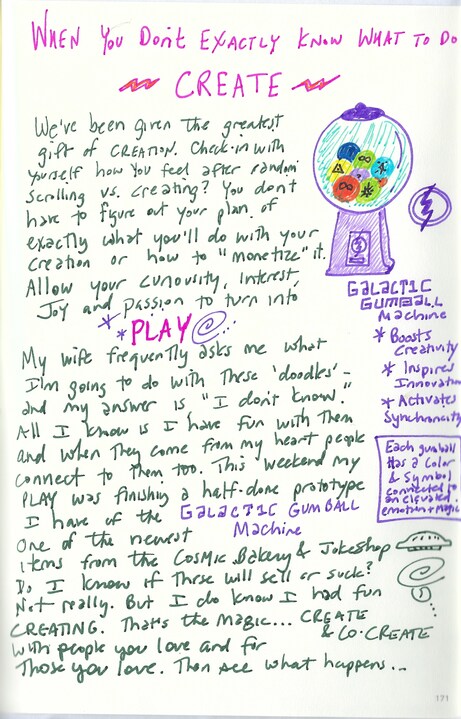 WHEN YOU DON'T EXACTLY KNOW WHAT TO DO
CREATE
We've been given the greatest
gift of CREATION. Check-in with
yourself how you feel after random
scrolling vs. creating? You don't
have to figure out your plan of
exactly what you'll do with your
creation or how to "monetize" it.
Allow your curiosity, interest,
Joy and passion to turn into
* * PLAY
My wife frequently asks me what
I'm going to do with these 'doodles' -
and my answer is "I don't know."
All I know is I have fun with them
and when they come from my heart people
connect to them too. This weekend my
PLAY was finishing a half-done prototype
I have of the GALACTIC GUMBALL
Machine
One of the newest
items from the Cosmic Bakery & Jokeshop
Do I know if these will sell or suck?
Not really. But I do know I had fun
CREATING. That's the magic... CREATE
& CO-CREATE
with people you love and for
those you love. Then see what happens...
GALACTIC
GUMBALL
Machine
* Boosts
Creativity
* Inspires
Innovation
* Activates
Synchronicity
Each gumball
has a color
& Symbol
connected to
an elevated
emotion + magic
171